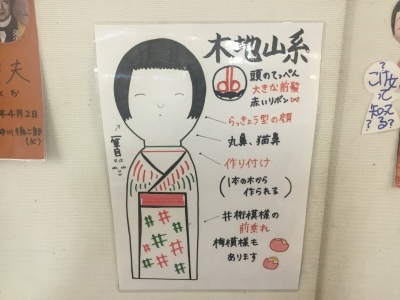 木地山系
頭のてっぺん
大きな前髪
赤いリボン
らっきょう型の顔
丸鼻、猫鼻
作り付け
(1本の木から
作られる)
井桁模様の
前垂れ
梅模様も
あります
こけ女って
知ってる?
夫
年4月2日